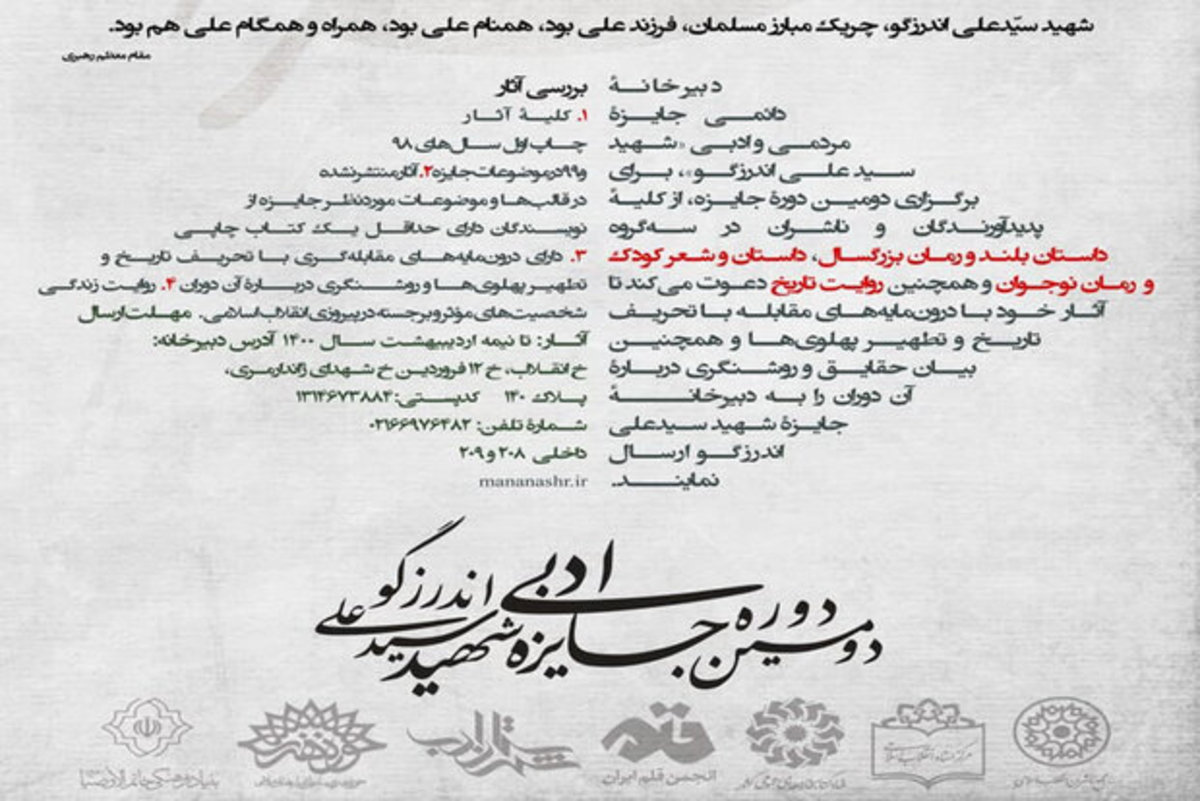 شهید سیّدعلی اندرزگو، چریک مبارز مسلمان، فرزند علی بود، همنام علی بود، همراه و همگام علی هم بود.
مقام معظم رهبری
دبیرخانهٔ
دائمی جایزهٔ
مردمی و ادبی «شهید
سید علی اندرزگو»، برای
برگزاری دومین دورهٔ جایزه، از کلیهٔ
پدیدآورندگان و ناشران در سه‌گروه
داستان بلند و رمان بزرگسال، داستان و شعر کودک
و رمان نوجوان و همچنین روایت تاریخ دعوت می‌کند تا
آثار خود با درون‌مایه‌های مقابله با تحریف
تاریخ و تطهیر پهلوی‌ها و همچنین
بیان حقایق و روشنگری دربارهٔ
آن دوران را به دبیرخانهٔ
جایزهٔ شهید سیدعلی
اندرزگو ارسال
نمایند.
بررسی آثار
۱. کلیهٔ آثار
چاپ اول سال‌های ۹۸
و۹۹درموضوعات‌جایزه۲.آثارمنتشرنشده
در قالب‌ها و موضوعات موردنظر جایزه از
نویسندگان دارای حداقل یک کتاب چاپی
۳. دارای درون‌مایه‌های مقابله‌گری با تحریف تاریخ و
تطهیر پهلوی‌ها و روشنگری دربارهٔ آن دوران ۴. روایت زندگی
شخصیت‌های مؤثر و برجسته در پیروزی انقلاب اسلامی. مهلت ارسال
آثار: تا نیمه اردیبهشت سال ۱۴۰۰ آدرس دبیرخانه:
خ انقلاب، خ ۱۲ فروردین خ شهدای ژاندارمری،
پلاک ۱۴۰ کدپستی:۱۳۱۴۶۷۳۸۸۴
شمارهٔ تلفن: ۰۲۱۶۶۹۷۶۴۸۲
داخلی ۲۰۸ و ۲۰۹
mananashr.ir
دومین دوره جایزه ادبی شهید سید علی اندرزگو
قلم
انجمن قلم ایران
شهرستان ادب